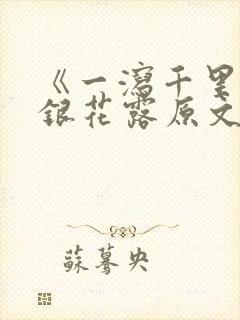 《一瀉千里
銀花露原文
蘇驀央